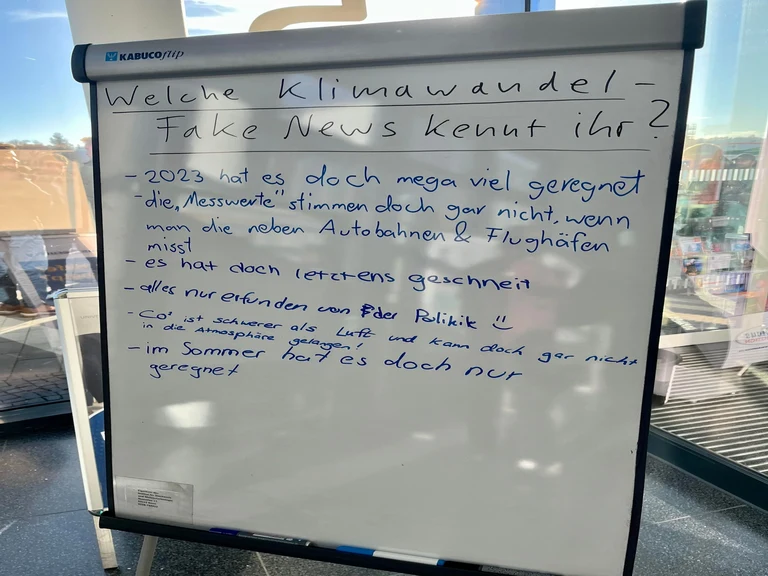 KABUCOflip
Welche Klimawandel-
Fake News kennt ihr?
- 2023 hat es doch mega viel geregnet
- die „Messwerte" stimmen doch gar nicht, wenn
man die neben Autobahnen & Flughäfen
misst
- es hat doch letztens geschneit
- alles nur erfunden von der Polikik ☺
- Co² ist schwerer als Luft und kann doch gar nicht
in die Atmosphäre gelangen!
- im Sommer hat es doch nur
geregnet